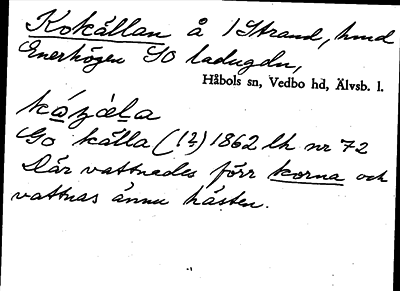 Kokällan å 1 Strand, hmd
Enerhögen SO ladugdn,
Håbols sn, Vedbo hd, Älvsb. l.
Go källa (1?) 1862 lh nr 72
Där vattnades förr korna och
vattnas ännu hästen.